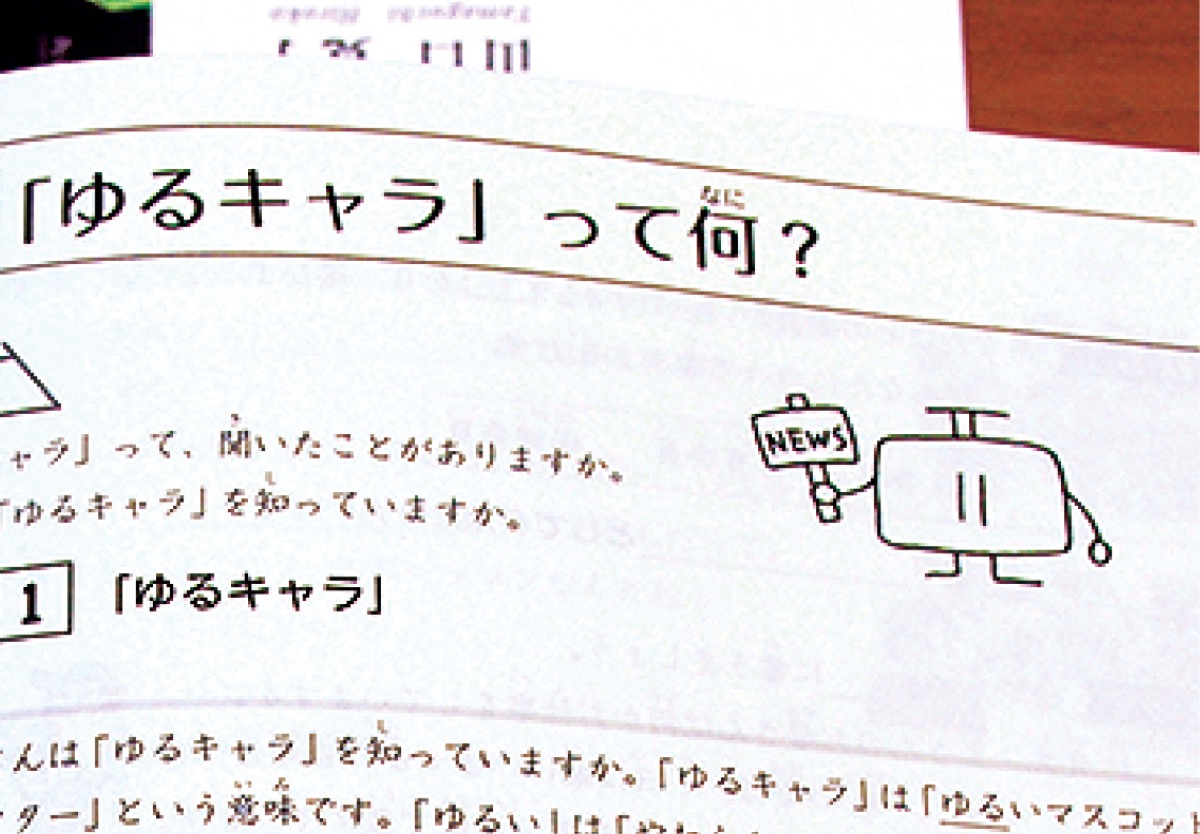 Yamaguchi Hiroko
「ゆるキャラ」って何？
なに
ャラ」って、聞いたことがありますか。
き
「ゆるキャラ」を知っていますか。
し
NEWS
1 「ゆるキャラ」
さんは「ゆるキャラ」を知っていますか。「ゆるキャラ」は「ゆるいマスコッ
し
クター」という意味です。「ゆるい」は「やわらか
いみ